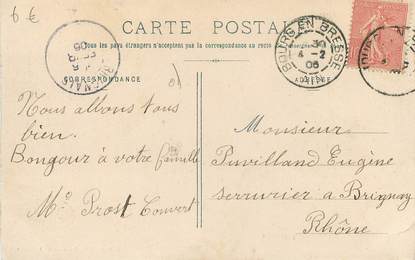 6 €
CARTE POSTALE
Tous les pays étrangers n'acceptent pas la correspondance au recto
CORRESPONDANCE
ADRESSE
BOURG EN BRESSE
4 -2
06
Nous allons tous
bien.
Bongour à votre famille
Mo Prost Convert
Monsieur
Puvilland Eugène
serrurier a Brignay
Rhône